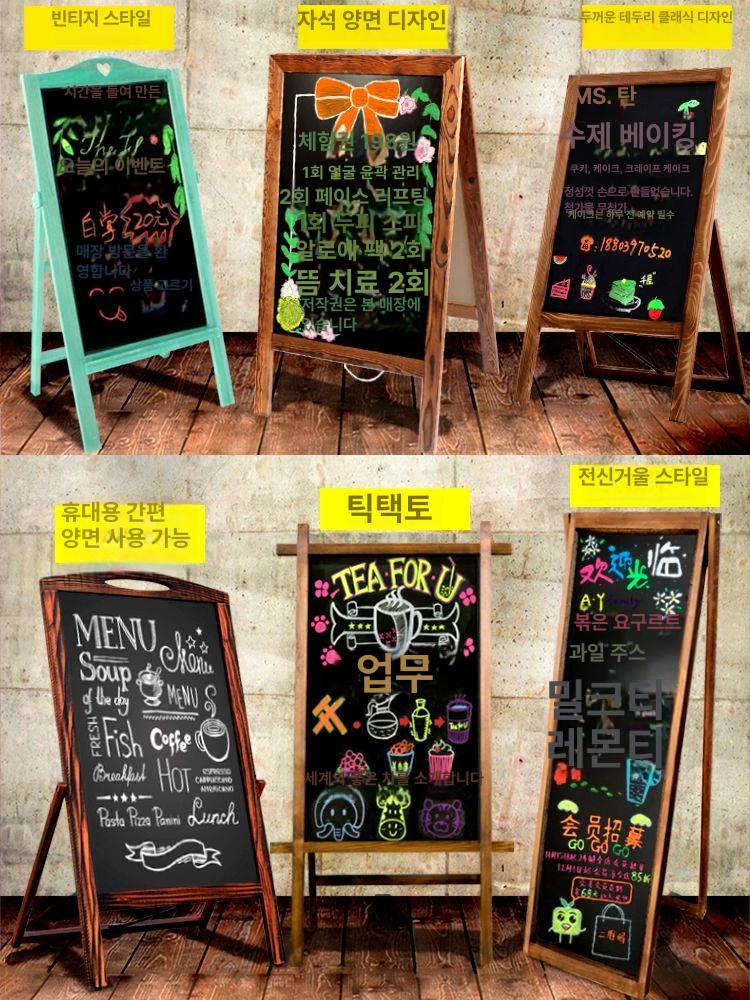 빈티지 스타일
자석 양면 디자인
두꺼운 테두리 클래식 디자인
시간을 들여 만든
오늘의 이벤트
白学
20元
매장 방문을 환
영합니다
상품 고르기
체험권 198원
1회 얼굴 윤곽 관리
2회 페이스 리프팅
1회 두피 스파
알로에 팩 2회
뜸 치료 2회
저작권은 본 매장에
있습니다
MS. 탄
수제 베이킹
쿠키, 케이크, 크레이프 케이크
정성껏 손으로 만들었습니다.
첨가물 무첨가
케이크는 하루 전 예약 필수
:18803970520
휴대용 간편
양면 사용 가능
틱택토
전신거울 스타일
MENU
Soup
of the day
Menu
MENU
FRESH
Fish
Coffee
Breakfast
HOT
ESPRESSO
CAPPUCCINO
AMERICANO
Pasta Pizza Panini
Lunch
TEA·FOR·U
업무
Tea for U
세계의 좋은 차를 소개합니다
欢迎光临
A·Y family
볶은 요구르트
과일 주스
밀크티
레몬티
会员招募
GO GO GO
85折